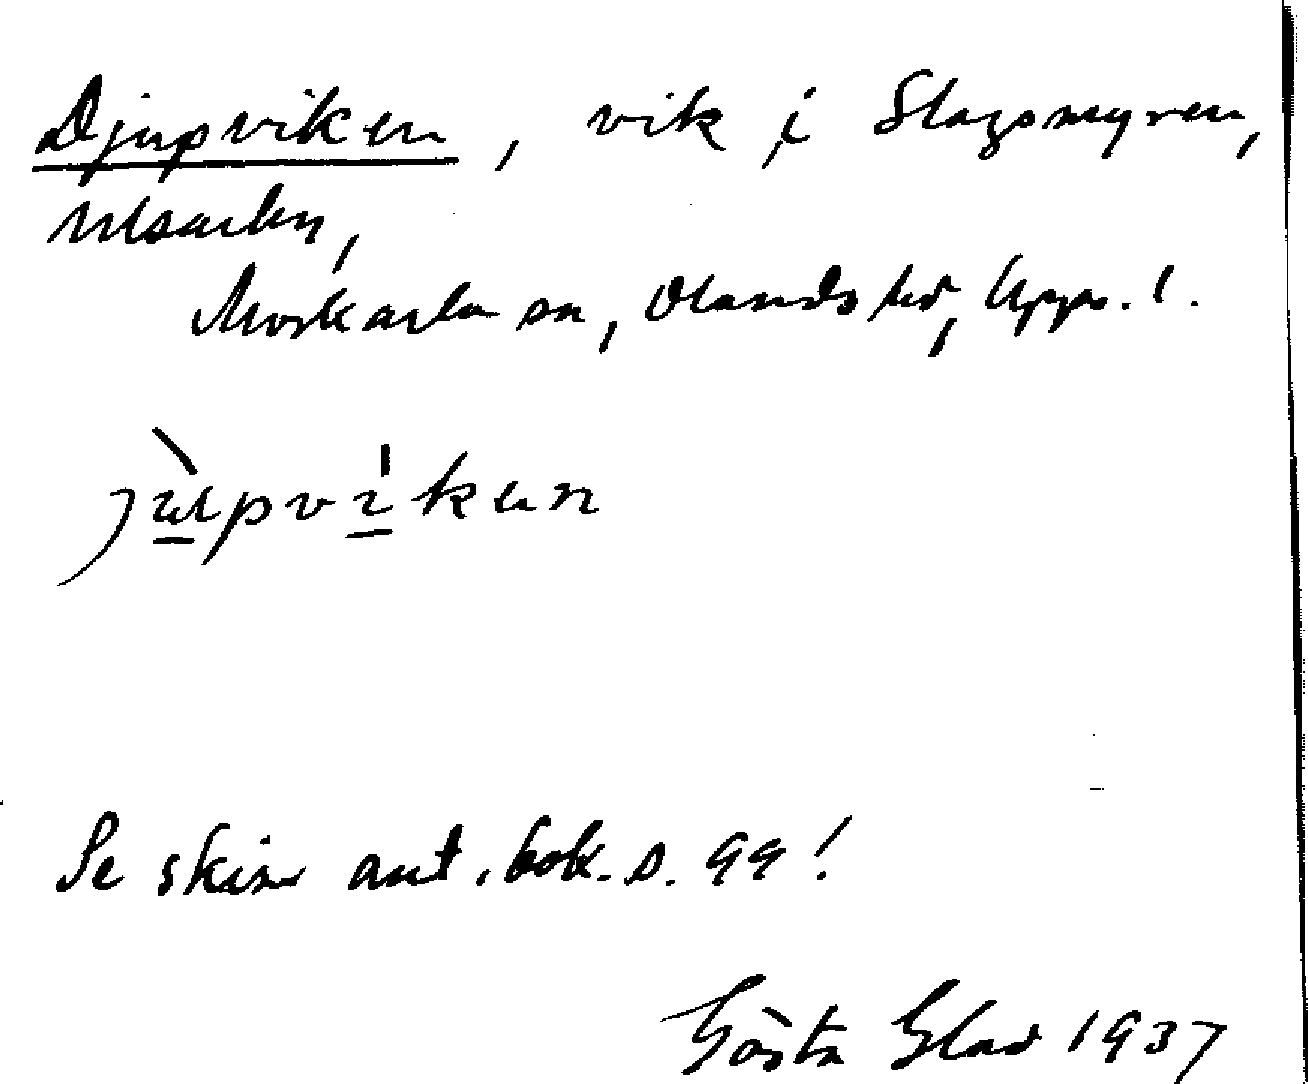 Djupviken, vik i Slagsmyren,
Ulvsarby,
Morkarla sn, Olands hd, Upps. l.
jùpvíkƶn
Se skiss ant. bok. s. 99!
Gösta Glad 1937